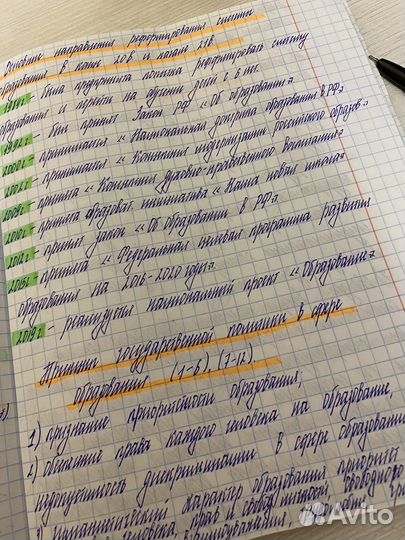 Основные направления реформирования системы
образования в конце 20 в и начале 21 в
была предпринята попытка реформировать систему
образования и перейти на обучение детей с 6 лет.
1992 г - был принят Закон РФ «Об образовании»
2000 г - принимается «Национальная доктрина образования в РФ»
принимается «Концепция модернизации российского образов.»
принята «Концепция духовно-нравственного воспитания»
принята образоват. инициатива «Наша новая школа»
2012 г - принят закон «Об образовании в РФ»
2015 г - принята «Федеральная целевая программа развития
образования на 2016-2020 годы»
2019 г - реализуется национальный проект «Образование»
Принципы государственной политики в сфере
образования (1-6), (7-12).
1) признание приоритетности образования;
2) обеспечение права каждого человека на образование,
недопустимость дискриминации в сфере образования
3) гуманистический характер образования, приоритет
человека, прав и свобод личности, свободного
Avito